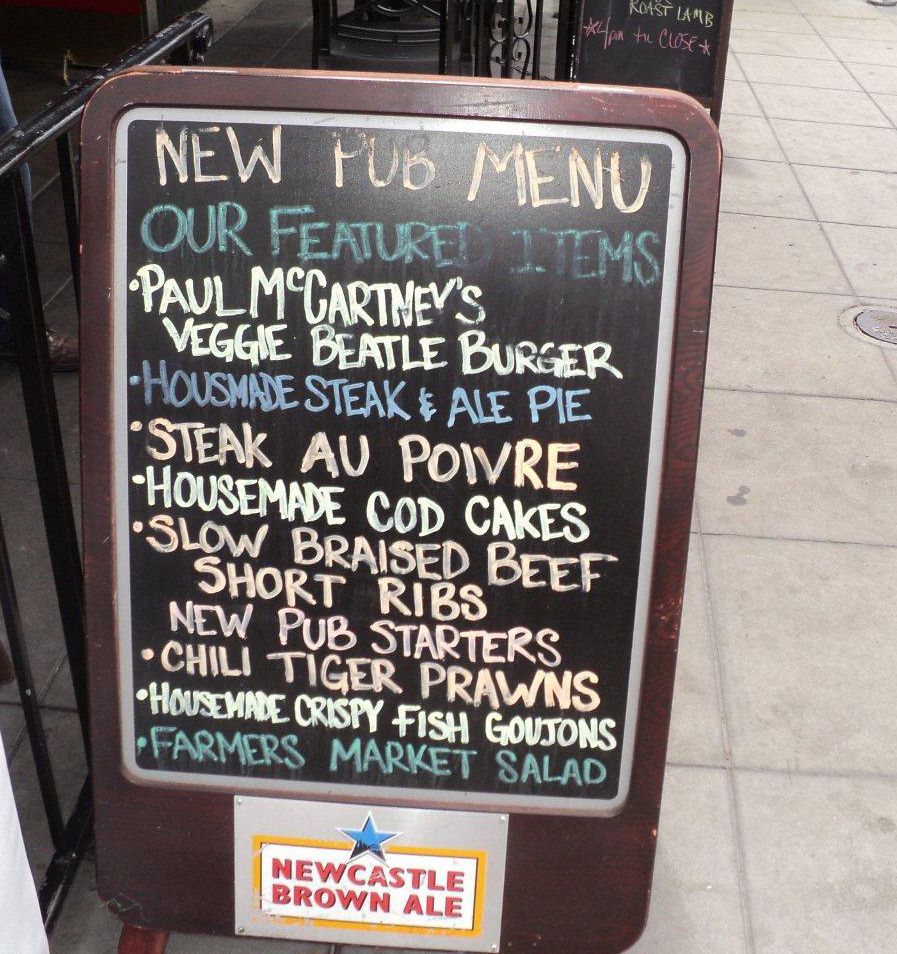 ROAST LAMB
★4pm til CLOSE★
NEW PUB MENU
OUR FEATURED ITEMS
•PAUL McCARTNEY'S
VEGGIE BEATLE BURGER
•HOUSMADE STEAK & ALE PIE
•STEAK AU POIVRE
•HOUSEMADE COD CAKES
•SLOW BRAISED BEEF
SHORT RIBS
NEW PUB STARTERS
•CHILI TIGER PRAWNS
•HOUSEMADE CRISPY FISH GOUJONS
•FARMERS MARKET SALAD
NEWCASTLE
BROWN ALE